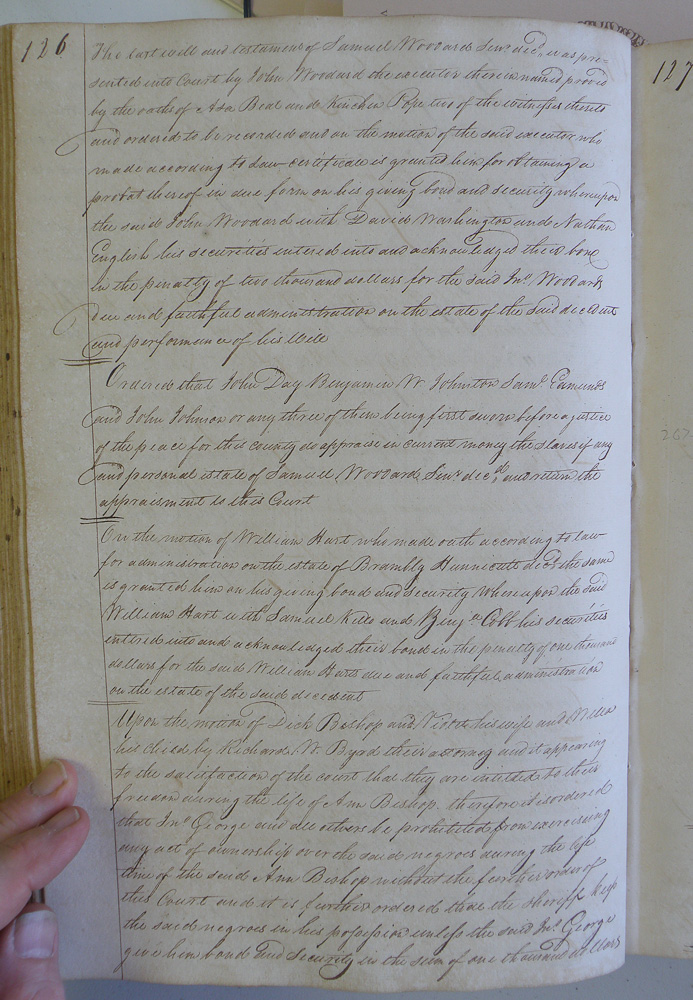 126
The last will and testament of Samuel Woodard Senr. decd. was pre-
sented into Court by John Woodard the executor therein named proved
by the oaths of Asa Beal and Kinchen Pope two of the witnesses thereto
and ordered to be recorded and on the motion of the said executor who
made according to Law certificate is granted him for obtaining a
probat thereof in due form on his giving bond and security whereupon
the said John Woodard with David Washington and Nathan
English his securities entered into and acknowledged their bond
in the penalty of two thousand dollars for the said Jno. Woodards
due and faithful administration on the estate of the said decedent
and performance of his Will
Ordered that John Day Benjamin W. Johnston Saml. Edmunds
and John Johnson or any three of them being first sworn before a justice
of the peace for this county do appraise in current money the slaves if any
and personal estate of Samuel Woodard Senr. decd. and return the
appraisment to this Court
On the motion of William Hart who made oath according to law
for administration on the estate of Brambly Hunnicutt decd. the same
is granted him on his giving bond and security Whereupon the said
William Hart with Samuel Kello and Benja. Cobb his securities
entered into and acknowledged their bond in the penalty of one thousand
dollars for the said William Harts due and faithful administration
on the estate of the said decedent
Upon the motion of Dick Bishop and his wife and
his child by Richard W. Byrd their attorney and it appearing
to the satisfaction of the court that they are intitled to their
freedom during the life of Ann Bishop. therefore it is ordered
that Jno. George and all others be prohibited from exercising
any act of ownership over the said negroes during the life
time of the said Ann Bishop without the further order of
this Court and it is further ordered that the sheriff keep
the said negroes in his possession unless the said Jno. George
give him bond and security in the sum of one thousand dollars
127